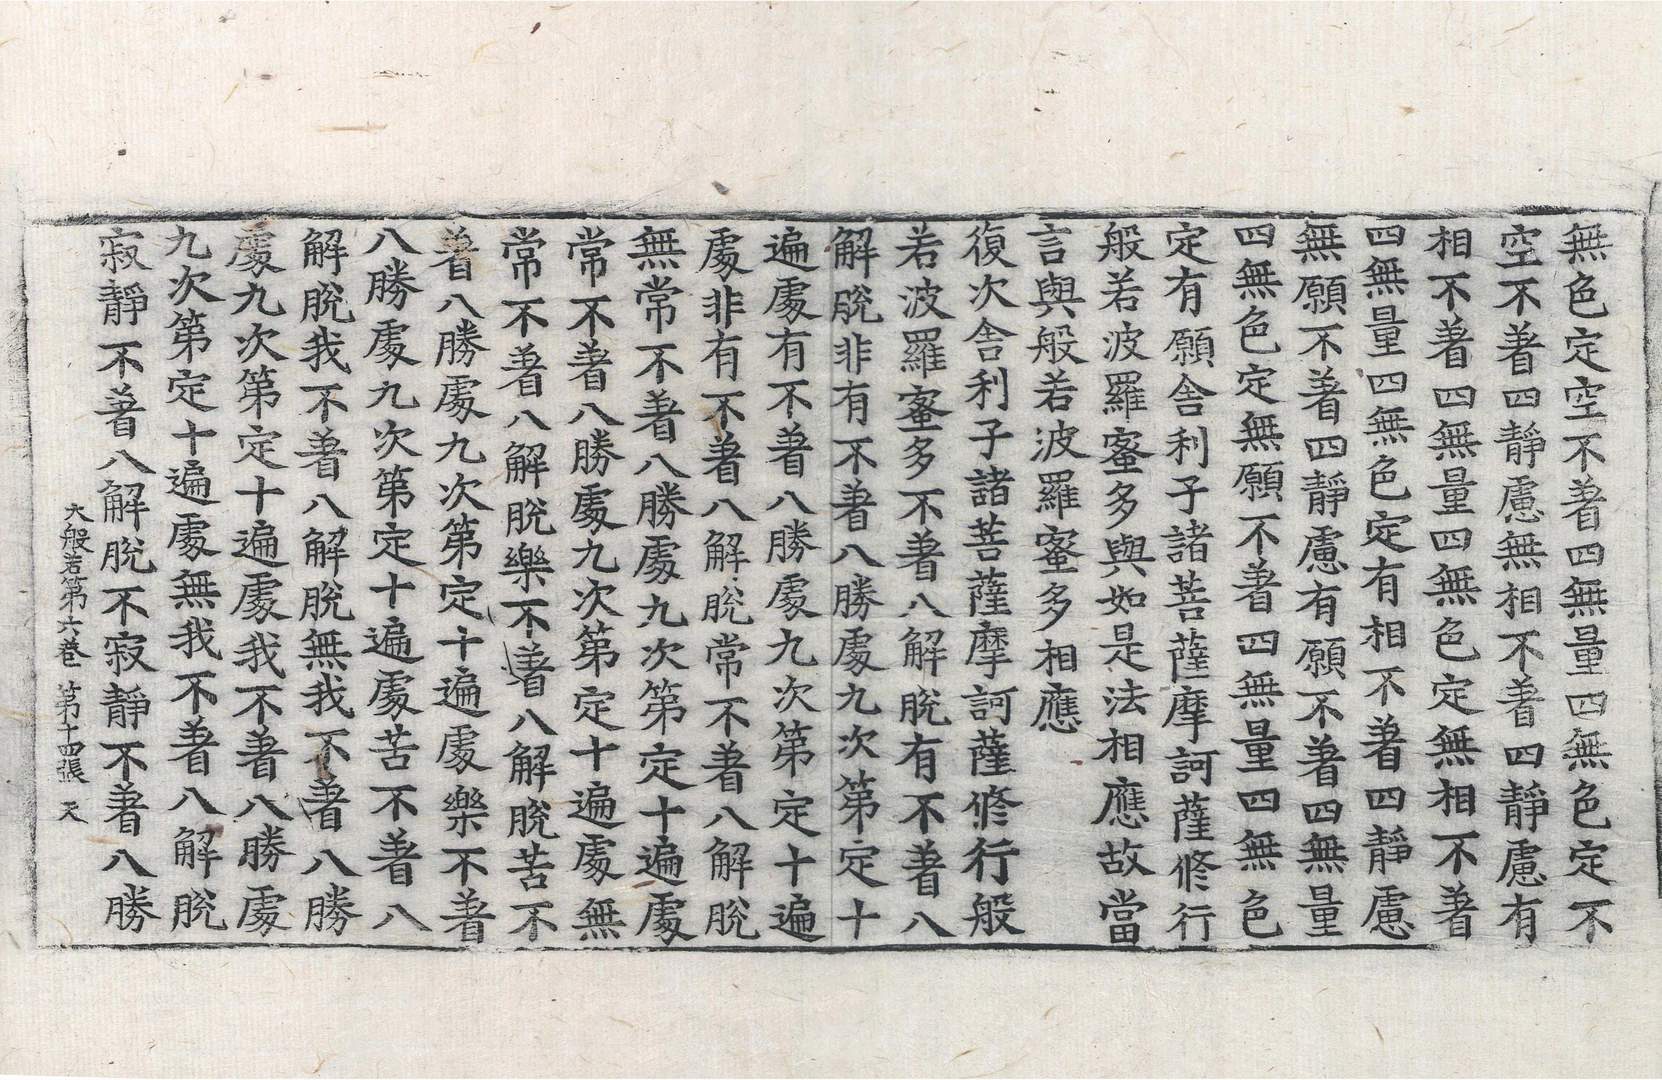 無色定空不著四無量四無色定不
空不著四靜慮無相不著四靜慮有
相不著四無量四無色定無相不著
四無量四無色定有相不著四靜慮
無願不著四靜慮有願不著四無量
四無色定無願不著四無量四無色
定有願舍利子諸菩薩摩訶薩修行
般若波羅蜜多與如是法相應故當
言與般若波羅蜜多相應
復次舍利子諸菩薩摩訶薩修行般
若波羅蜜多不著八解脫有不著八
解脫非有不著八勝處九次第定十
遍處有不著八勝處九次第定十遍
處非有不著八解脫常不著八解脫
無常不著八勝處九次第定十遍處
常不著八勝處九次第定十遍處無
常不著八解脫樂不著八解脫苦不
著八勝處九次第定十遍處樂不著
八勝處九次第定十遍處苦不著八
解脫我不著八解脫無我不著八勝
處九次第定十遍處我不著八勝處
九次第定十遍處無我不著八解脫
寂靜不著八解脫不寂靜不著八勝
大般若第六卷 第十四張 天